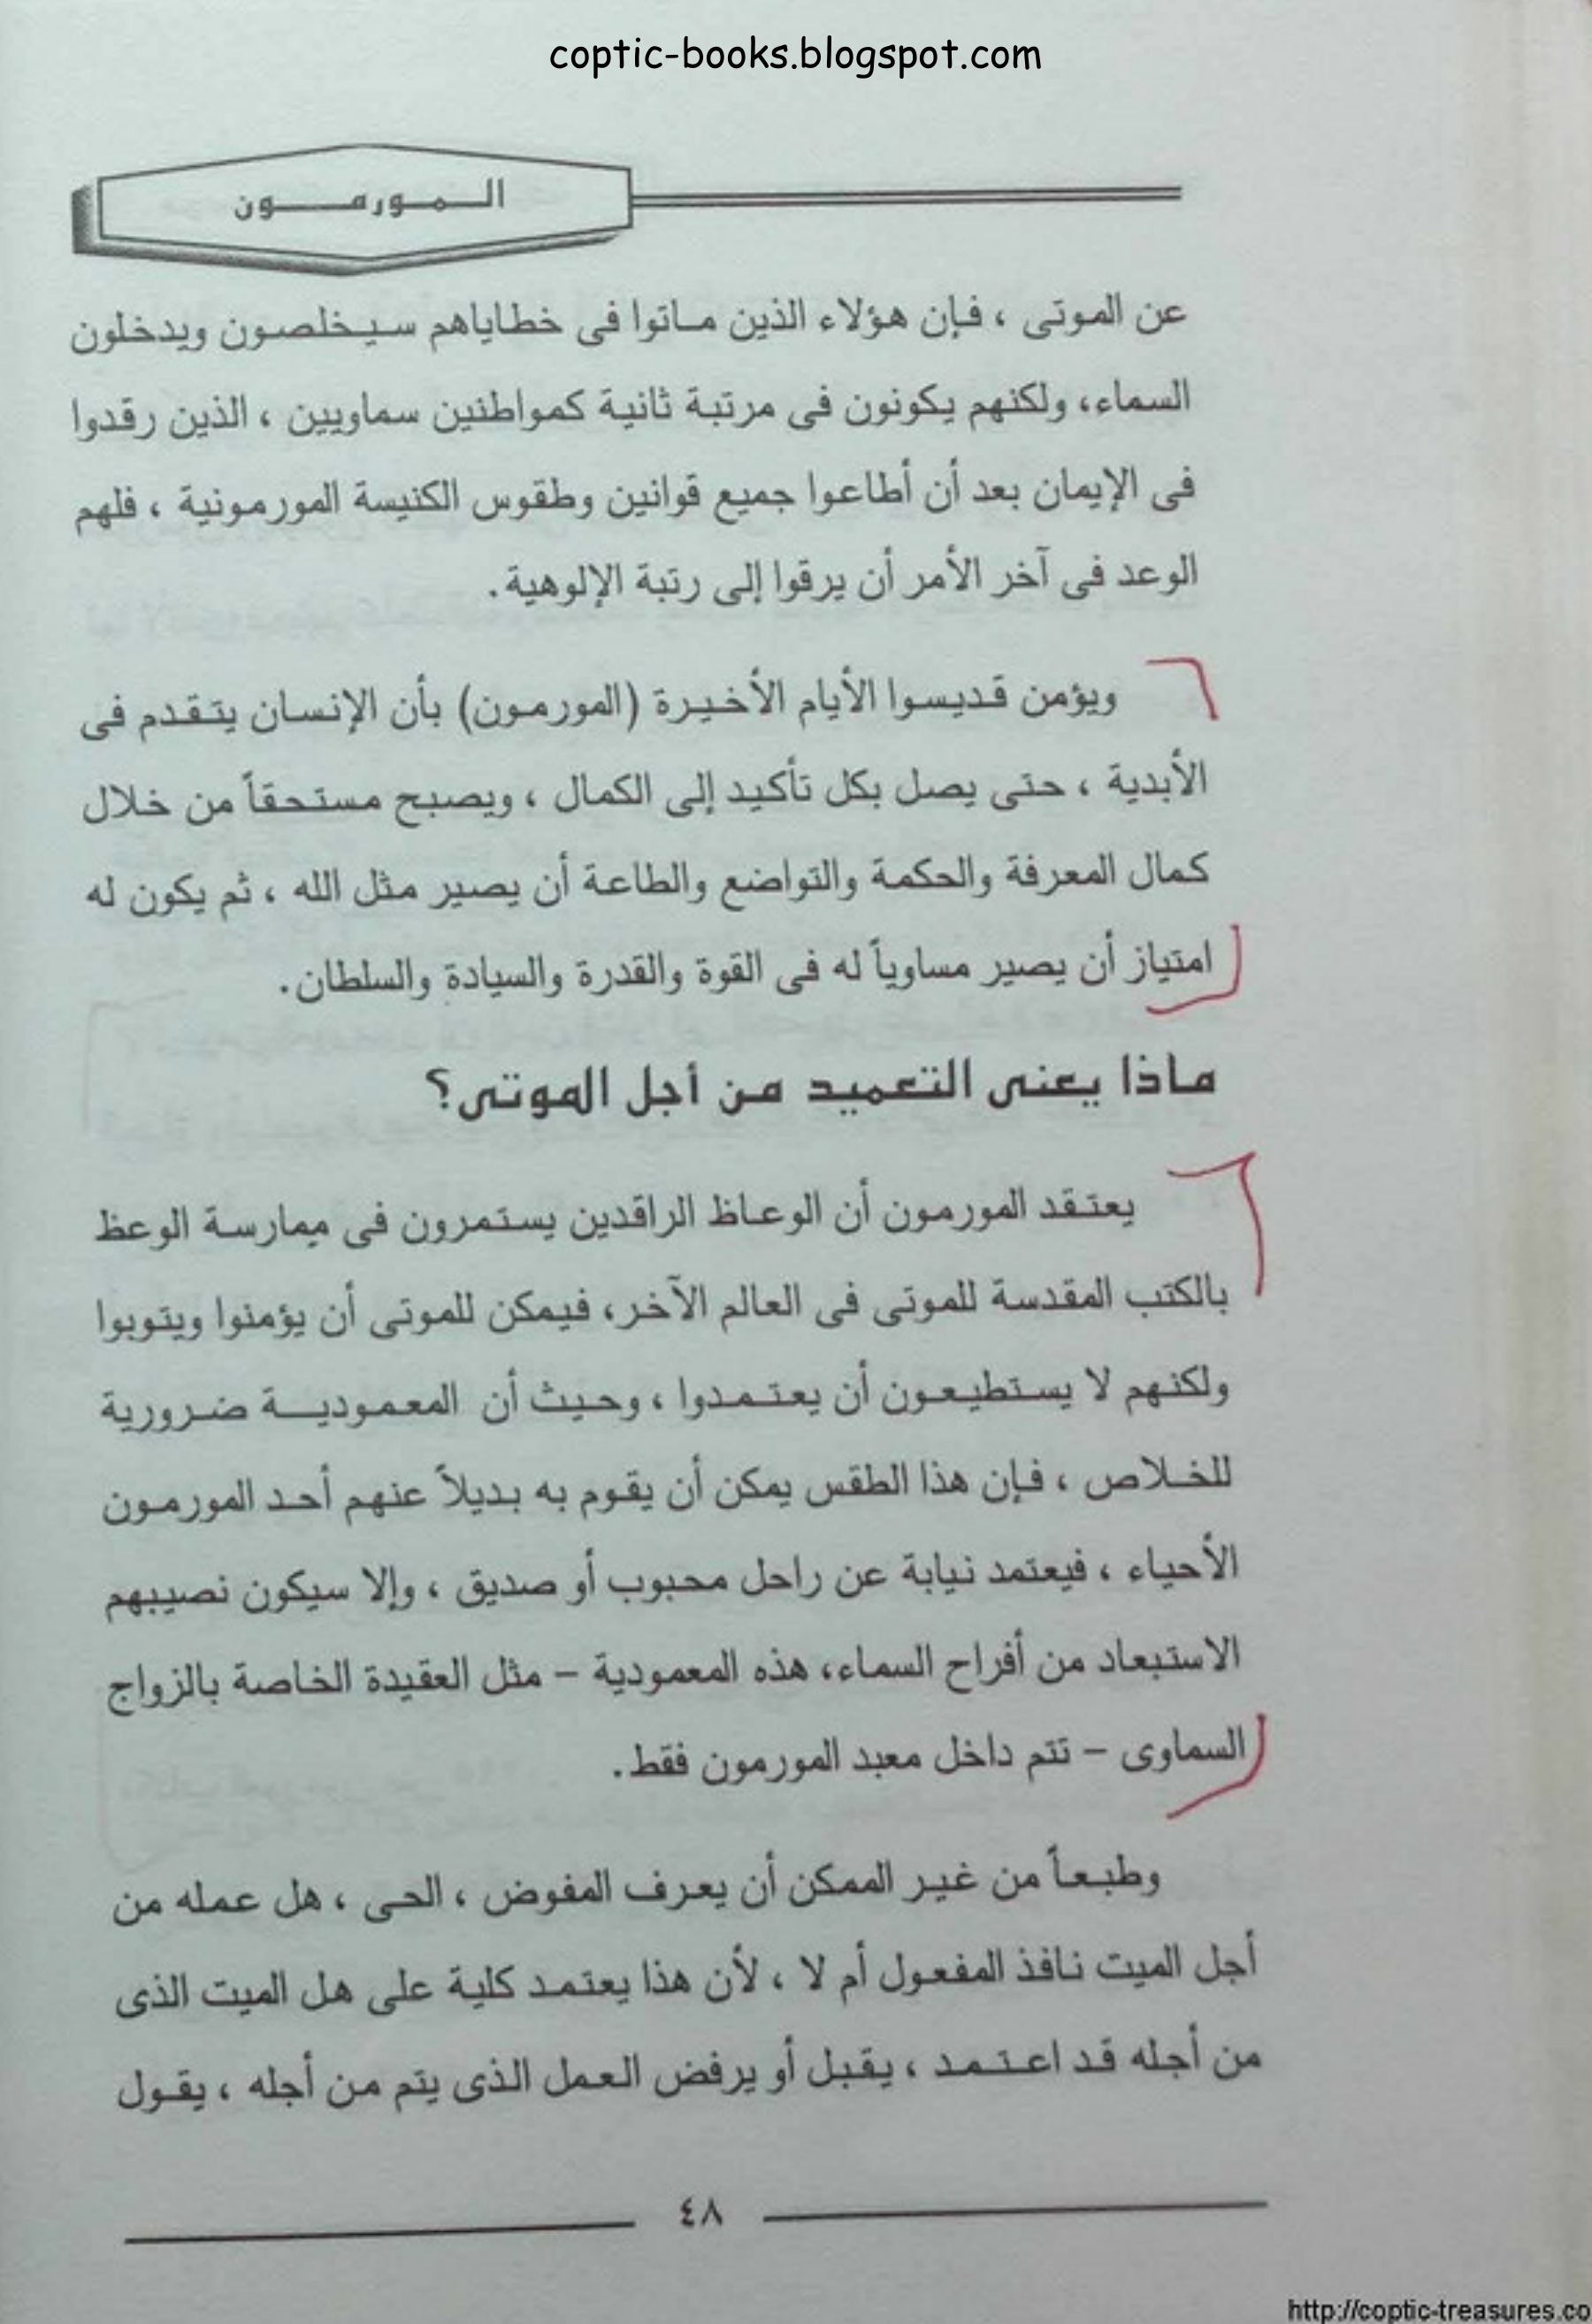 coptic-books.blogspot.com
المورمون
عن الموتى ، فإن هؤلاء الذين ماتوا فى خطاياهم سيخلصون ويدخلون
السماء، ولكنهم يكونون فى مرتبة ثانية كمواطنين سماويين ، الذين رقدوا
فى الإيمان بعد أن أطاعوا جميع قوانين وطقوس الكنيسة المورمونية ، فلهم
الوعد فى آخر الأمر أن يرقوا إلى رتبة الإلوهية.
ويؤمن قديسوا الأيام الأخيرة (المورمون) بأن الإنسان يتقدم فى
الأبدية ، حتى يصل بكل تأكيد إلى الكمال ، ويصبح مستحقاً من خلال
كمال المعرفة والحكمة والتواضع والطاعة أن يصير مثل الله ، ثم يكون له
امتياز أن يصير مساوياً له فى القوة والقدرة والسيادة والسلطان.
ماذا يعنى التعميد من أجل الموتى؟
يعتقد المورمون أن الوعاظ الراقدين يستمرون فى ممارسة الوعظ
بالكتب المقدسة للموتى فى العالم الآخر، فيمكن للموتى أن يؤمنوا ويتوبوا
ولكنهم لا يستطيعون أن يعتمدوا ، وحيث أن المعمودية ضرورية
للخلاص ، فإن هذا الطقس يمكن أن يقوم به بديلاً عنهم أحد المورمون
الأحياء ، فيعتمد نيابة عن راحل محبوب أو صديق ، وإلا سيكون نصيبهم
الاستبعاد من أفراح السماء، هذه المعمودية – مثل العقيدة الخاصة بالزواج
السماوى – تتم داخل معبد المورمون فقط.
وطبعاً من غير الممكن أن يعرف المفوض ، الحى ، هل عمله من
أجل الميت نافذ المفعول أم لا ، لأن هذا يعتمد كلية على هل الميت الذى
من أجله قد اعتمد ، يقبل أو يرفض العمل الذى يتم من أجله ، يقول
٤٨
http://coptic-treasures.co